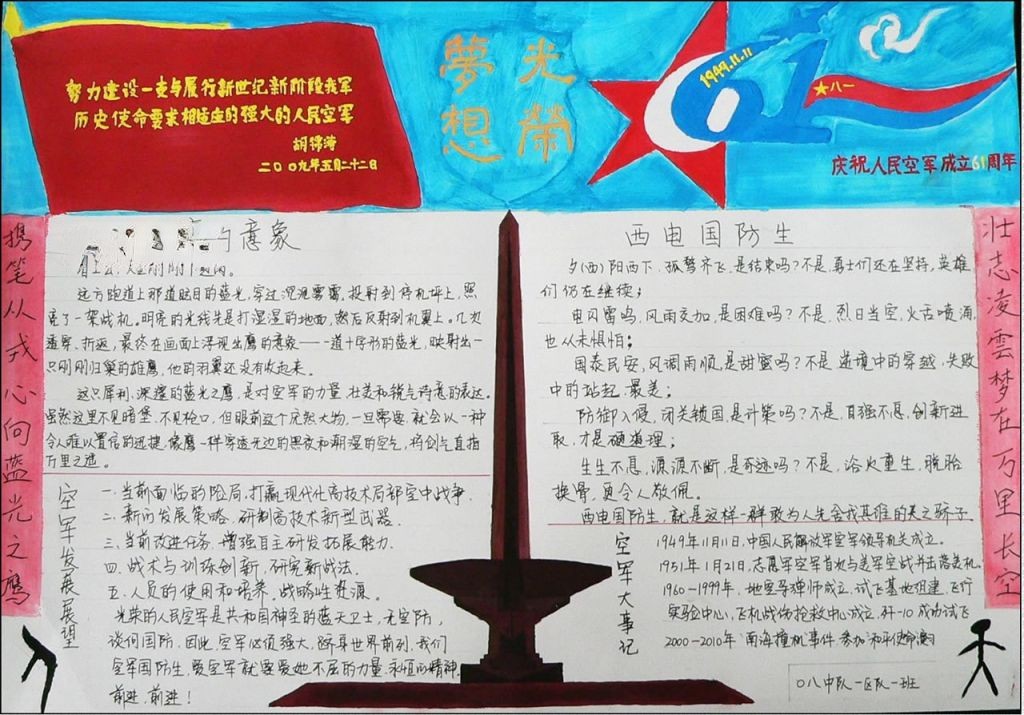 努力建设一支与履行新世纪新阶段我军
历史使命要求相适应的强大的人民空军
胡锦涛
二〇〇九年五月二十二日
光荣
夢想
1949.11.11
61
八一
庆祝人民空军成立61周年
携笔从戎心向蓝光之鹰
壮志凌雲梦在万里长空
与意象
远方跑道上那道眩目的蓝光,穿过沉沉雾霭,投射到停机坪上,照
亮了一架战机。明亮的光线先是打湿湿的地面,然后反射到机翼上。几次
遭穿、折返,最终在画面上浮现出鹰的意象——一道十字形的蓝光,映射出一
只刚刚归巢的雄鹰,他的羽翼还没有收起来。
这只犀利、深邃的蓝光之鹰,是对空军的力量、壮美和锐气诗意的表达。
虽然这里不见暗堡,不见枪口,但眼前这个庞然大物,一旦需要,就会以一种
令人难以置信的迅捷,像鹰一样穿透无边的黑夜和潮湿的空气,将剑气直指
万里之遥。
空军发展展望
一.当前面临的险局,打赢现代化高技术局部空中战争.
二.新的发展策略,研制高技术新型武器.
三.当前改进任务,增强自主研发拓展能力.
四.战术与训练创新,研究新战法.
五.人员的使用和培养,战略性资源.
光荣的人民空军是共和国神圣的蓝天卫士,无空防,
谈何国防,因此,空军必须强大,跻身世界前列,我们
空军国防生,爱空军就要爱她不屈的力量,永恒的精神.
前进,前进!
西电国防生
夕(西)阳西下,孤鹜齐飞,是结束吗?不是,勇士们还在坚持,英雄
们仍在继续;
电闪雷鸣,风雨交加,是困难吗?不是,烈日当空,火舌喷涌,
也从未惧怕;
国泰民安,风调雨顺,是甜蜜吗?不是,逆境中的穿越,失败
中的站起,最美;
防御入侵,闭关锁国,是计策吗?不是,自强不息,创新进
取,才是硬道理;
生生不息,源源不断,是奇迹吗?不是,浴火重生,脱胎
换骨,更令人敬佩。
西电国防生,就是这样一群敢为人先舍我其谁的天之骄子.
空军大事记
1949年11月11日,中国人民解放军空军领导机关成立。
1951年1月21日,志愿军空军首次与美军空战并击落美机.
1960—1999年,地空导弹师成立,试飞基地组建,飞行
实验中心,飞机战伤抢救中心成立,歼-10成功试飞
2000-2010年南海撞机事件,参加和平使命
〇八中队一区队一班